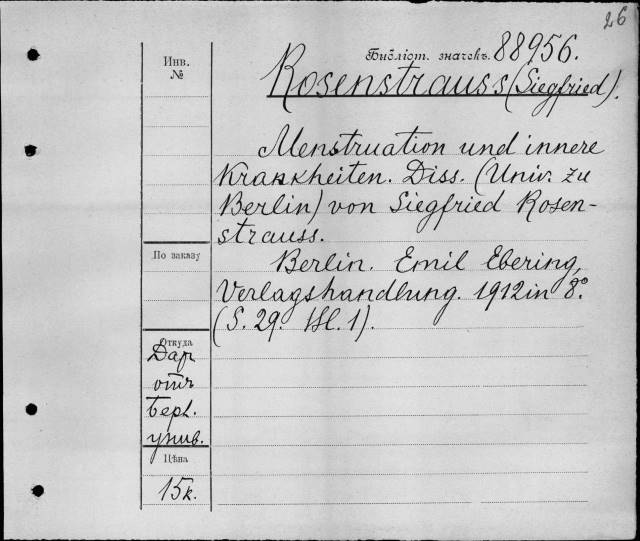 26
Инв.
№
Библіот. значекъ. 88956.
Rosenstrauss (Siegfried).
Menstruation und innere
Krankheiten. Diss. (Univ. zu
Berlin) von Siegfried Rosen-
strauss.
Berlin. Emil Ebering,
Verlagshandlung. 1912 in 8°.
(S. 29. Bl. 1).
По заказу
Откуда
Дар
отъ
Берл.
унив.
Цѣна
15к.